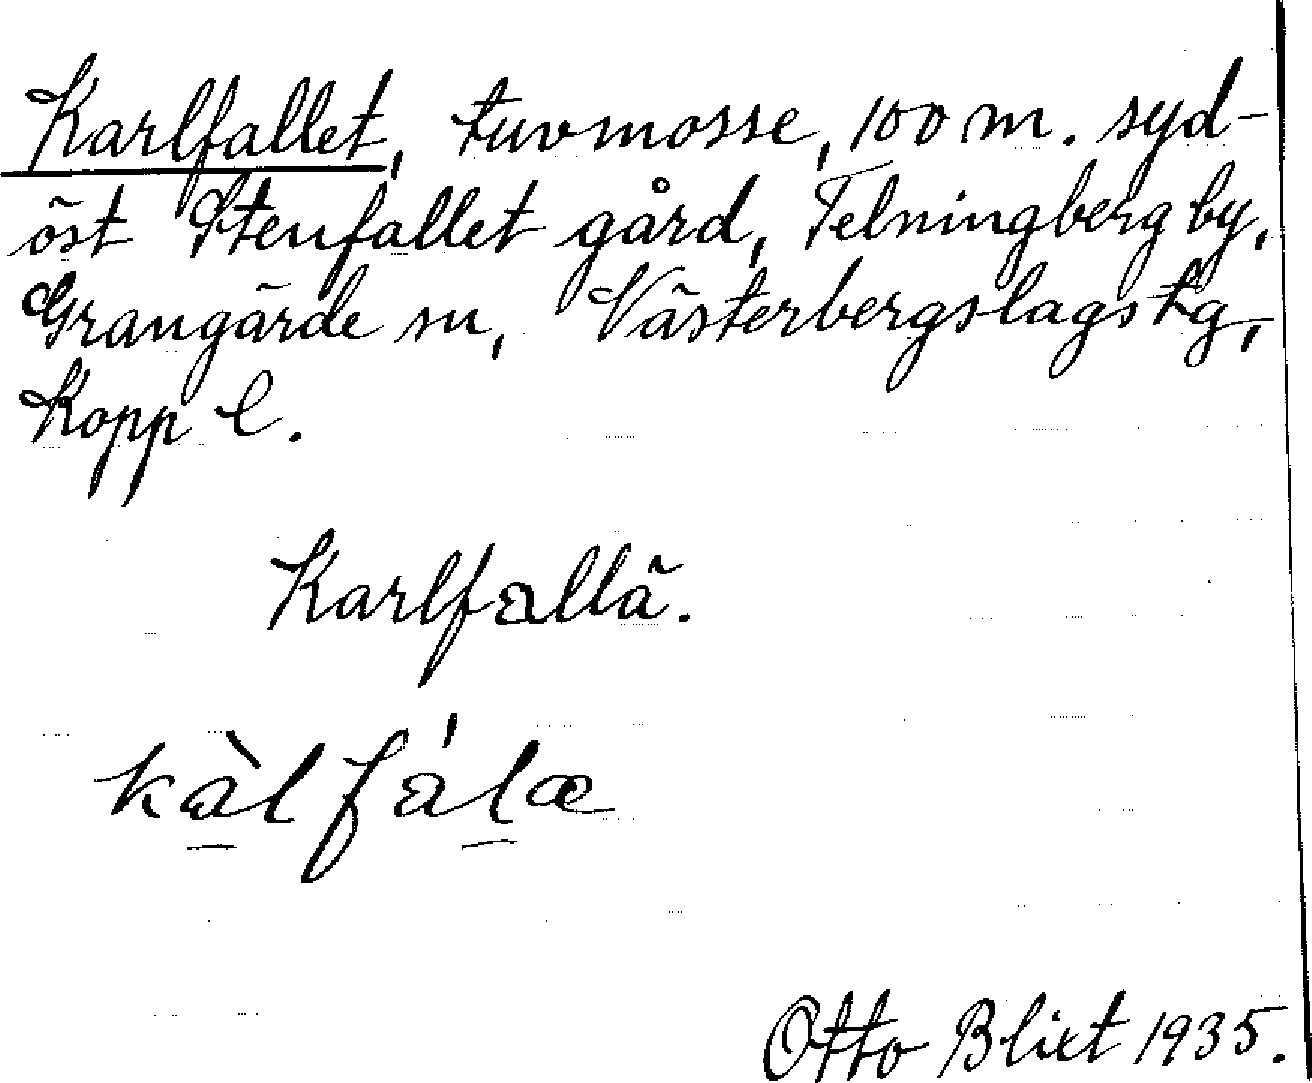 Karlfallet, tuvmosse, 100 m. syd-
öst Stenfallet gård, Telningberg by,
Grangärde sn, Västerbergslags tg,
Kopp l.
Karlfallä.
kàlfálæ
Otto Blixt 1935.